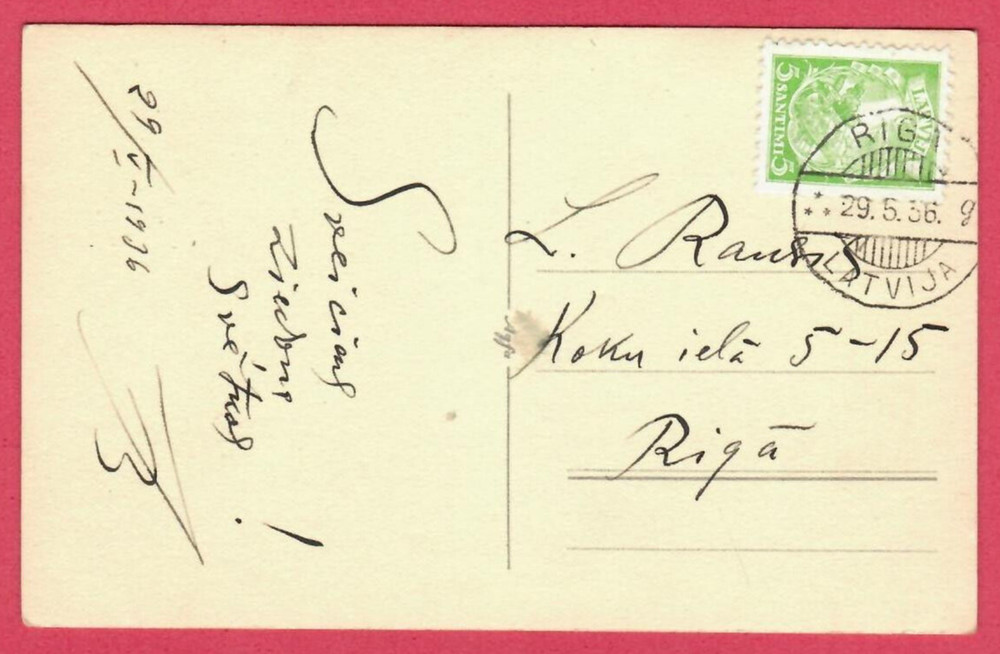 29/V-1936
Sveiciens
Svētkos !
LATVIJA
5 SANTIMI 5
RIGA
29.5.36. g
LATVIJA
L.
Koku ielā 5-15
Rigā